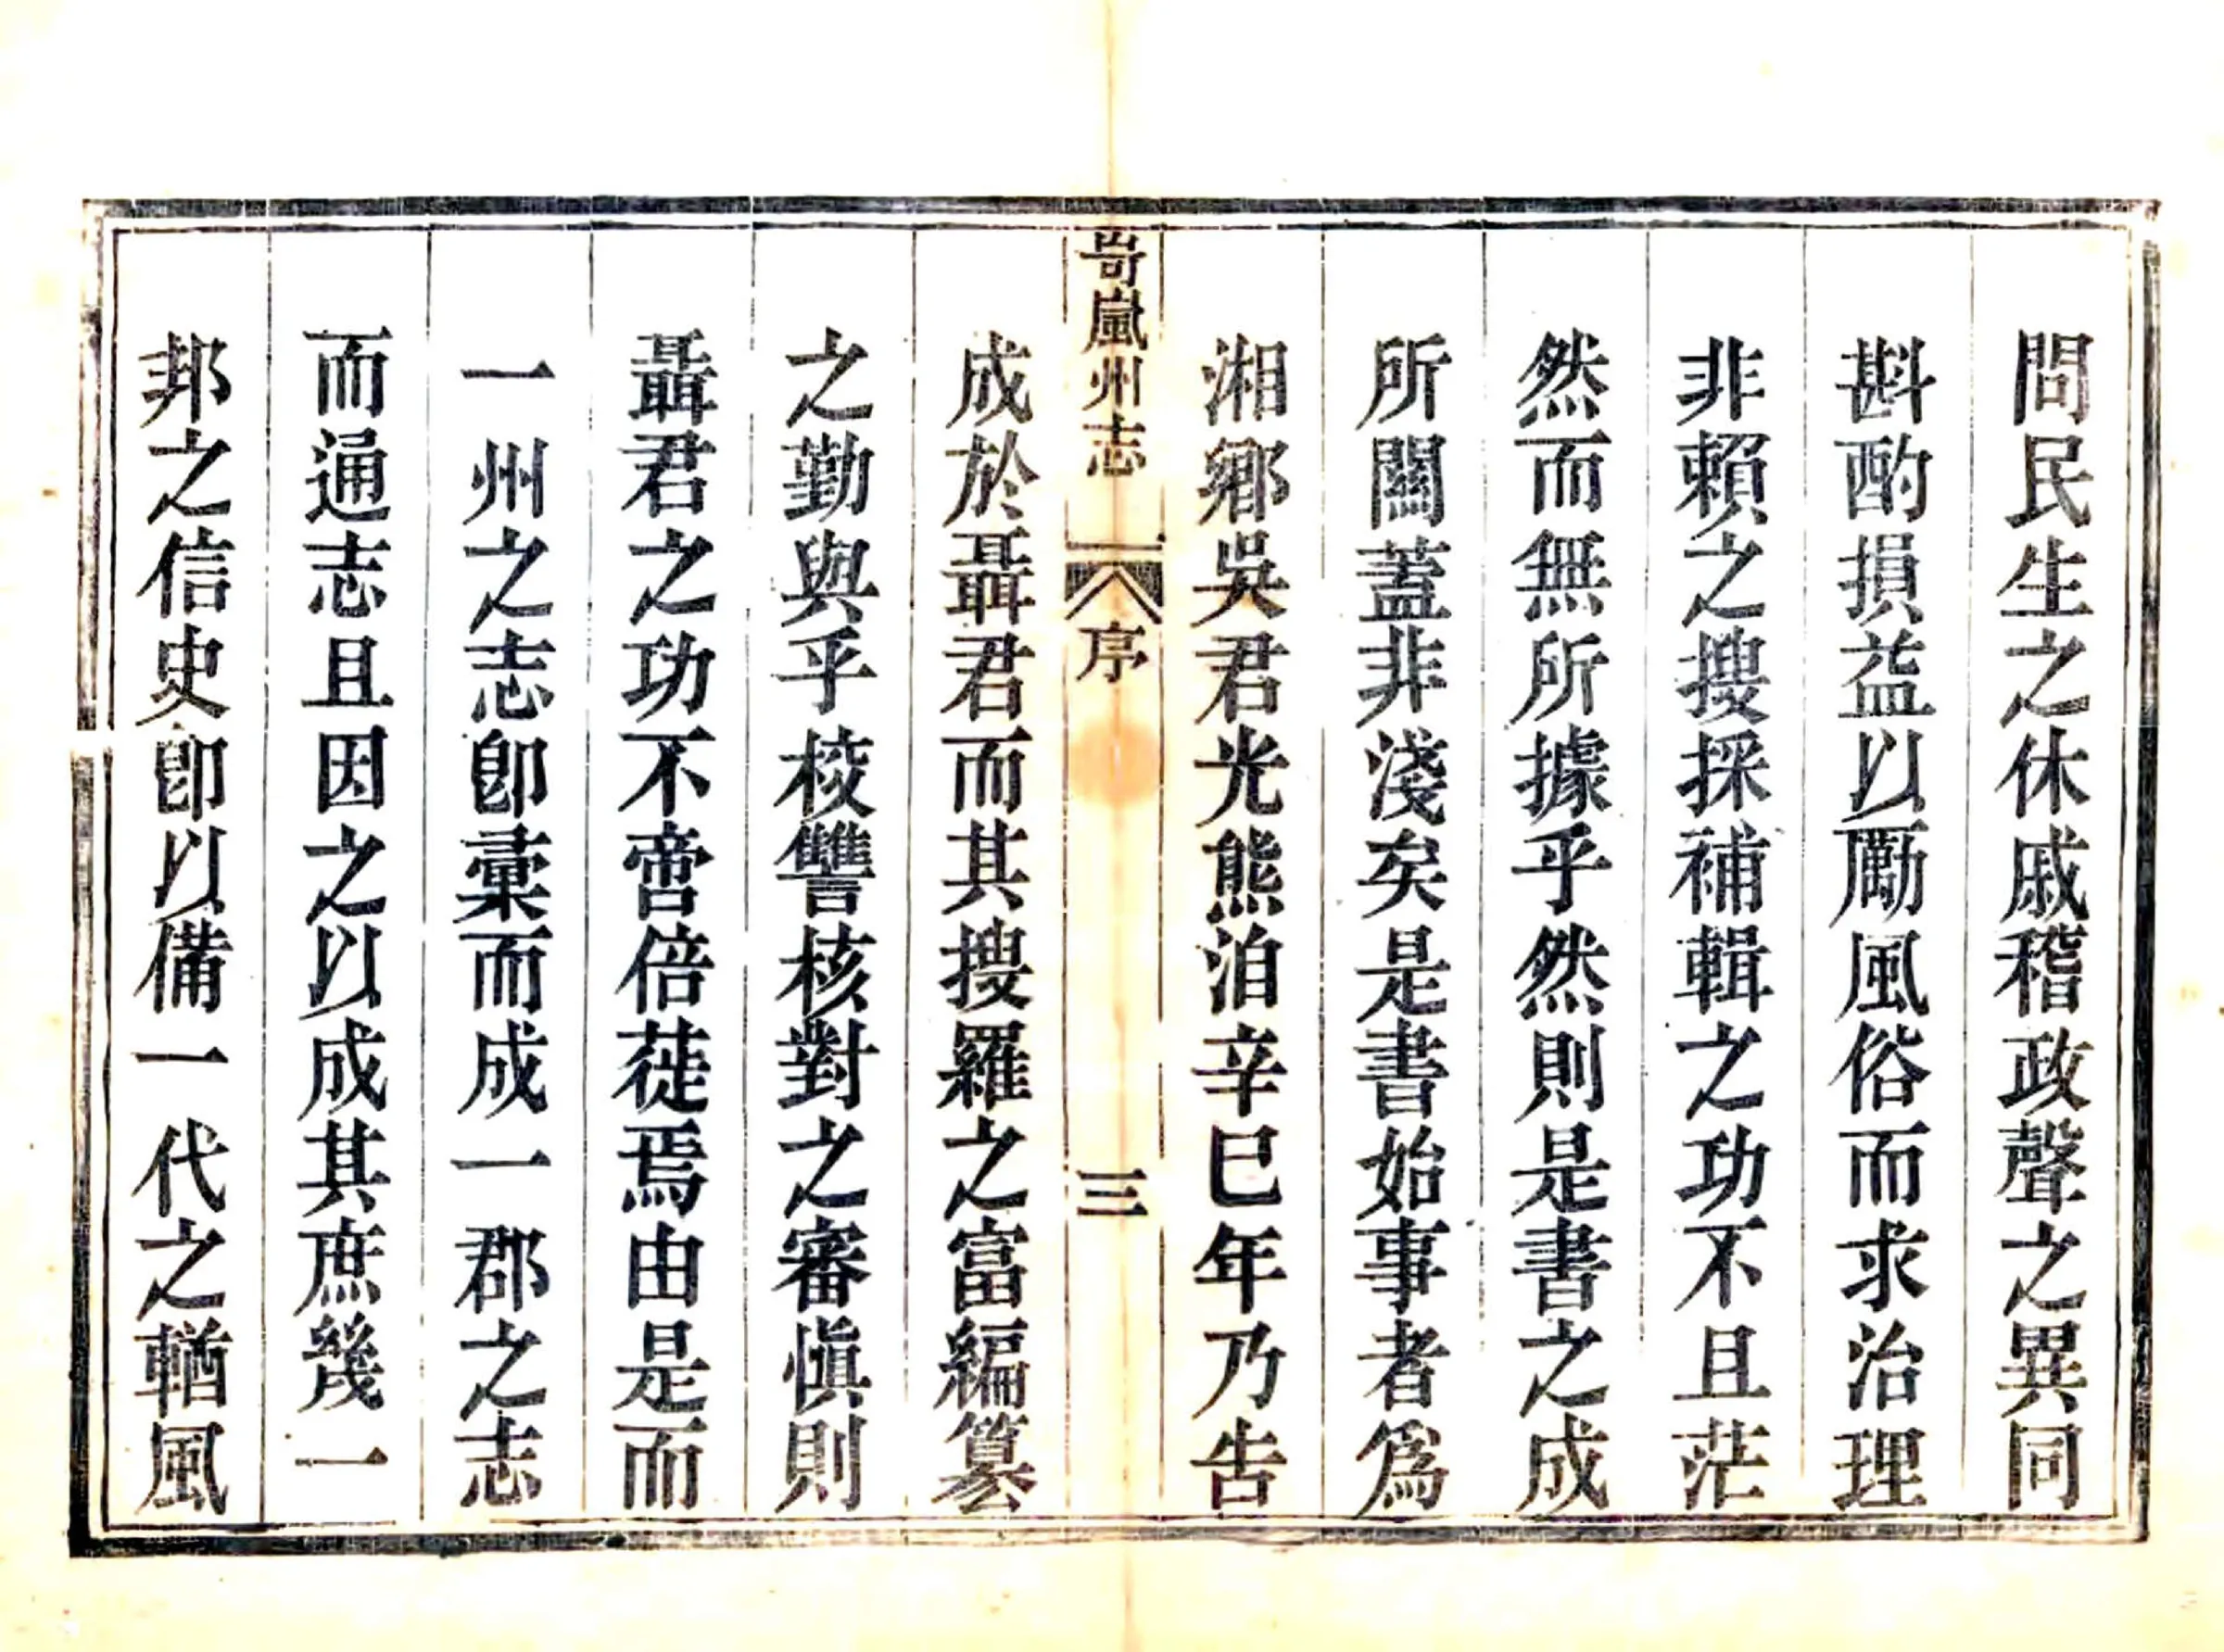 問民生之休戚稽政聲之異同
斟酌損益以勵風俗而求治理
非賴之搜採補輯之功不且茫
然而無所據乎然則是書之成
所關蓋非淺矣是書始事者爲
湘鄉吳君光熊洎辛巳年乃告
岢嵐州志 序 三
成於聶君而其搜羅之富編纂
之勤與乎校讐核對之審慎則
聶君之功不啻倍蓰焉由是而
一州之志卽彙而成一郡之志
而通志且因之以成其庶幾一
邦之信史卽以備一代之輶風